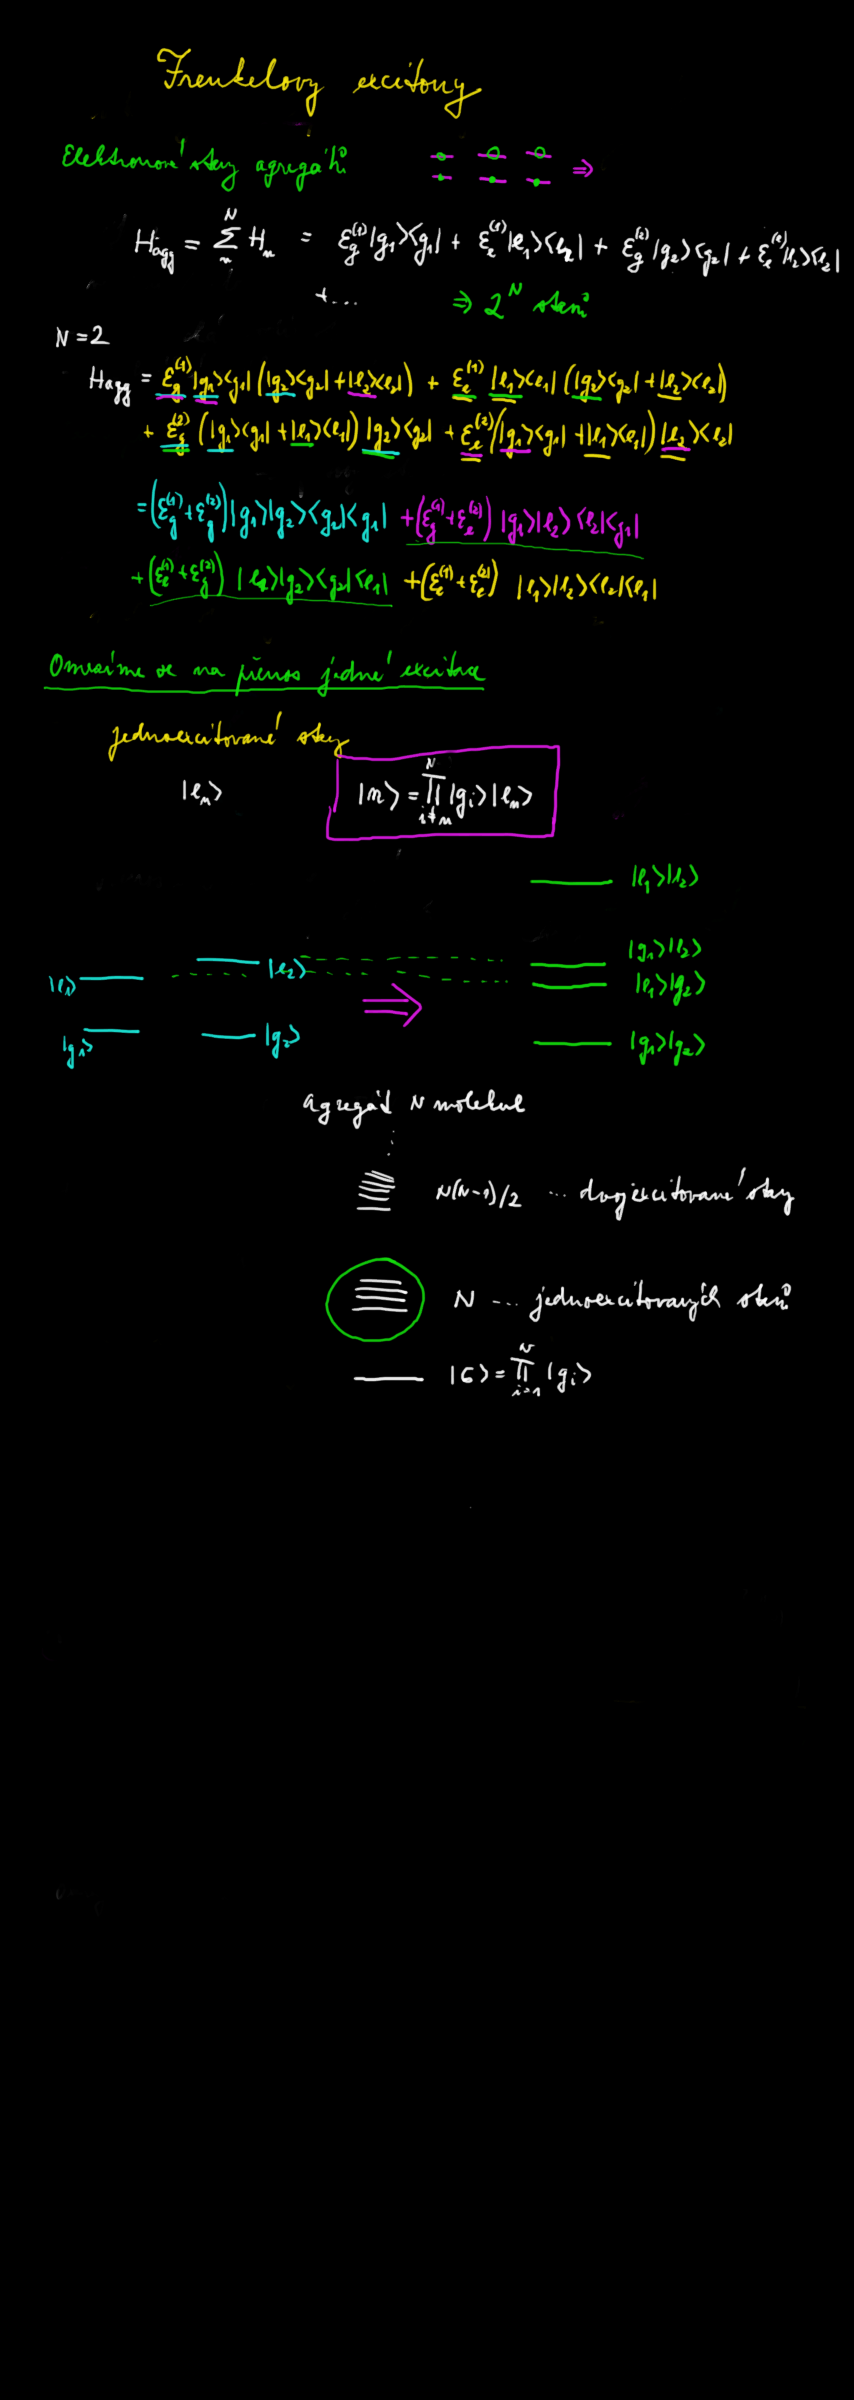 Frenkelovy excitony
Elektronové stavy agregátů ⇒
H_agg = Σ_n^N H_n = ε_g^(1)|g_1><g_1| + ε_e^(1)|e_1><e_1| + ε_g^(2)|g_2><g_2| + ε_e^(2)|e_2><e_2|
+... ⇒ 2^N stavů
N=2
H_agg = ε_g^(1)|g_1><g_1|(|g_2><g_2|+|e_2><e_2|) + ε_e^(1)|e_1><e_1|(|g_2><g_2|+|e_2><e_2|)
+ ε_g^(2)(|g_1><g_1|+|e_1><e_1|)|g_2><g_2| + ε_e^(2)(|g_1><g_1|+|e_1><e_1|)|e_2><e_2|
=(ε_g^(1)+ε_g^(2))|g_1>|g_2><g_2|<g_1| +(ε_g^(1)+ε_e^(2))|g_1>|e_2><e_2|<g_1|
+(ε_e^(1)+ε_g^(2))|e_1>|g_2><g_2|<e_1| +(ε_e^(1)+ε_e^(2))|e_1>|e_2><e_2|<e_1|
Omezíme se na přenos jedné excitace
jednoexcitované stavy
|e_n> |n> = ∏_{i≠n}^N |g_i>|e_n>
|e_1>|e_2>
|g_1>|e_2>
|e_1> |e_2> |e_1>|g_2>
|g_1> |g_2> ⇒ |g_1>|g_2>
agregát N molekul
⋮
N(N-1)/2 ... dvojexcitované stavy
N ... jednoexcitovaných stavů
|G> = ∏_{i=1}^N |g_i>